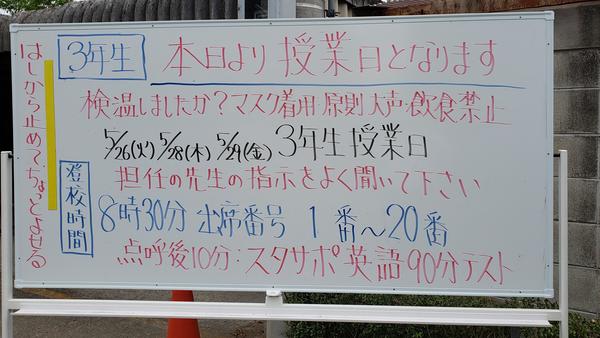 3年生 本日より授業日となります
検温しましたか？マスク着用 原則 大声・飲食禁止
5/26(火) 5/28(木) 5/29(金) 3年生授業日
担任の先生の指示をよく聞いて下さい
登校時間 8時30分 出席番号 1番～20番
点呼後10分：スタサポ英語90分テスト
はしから止めてちょっとよせる